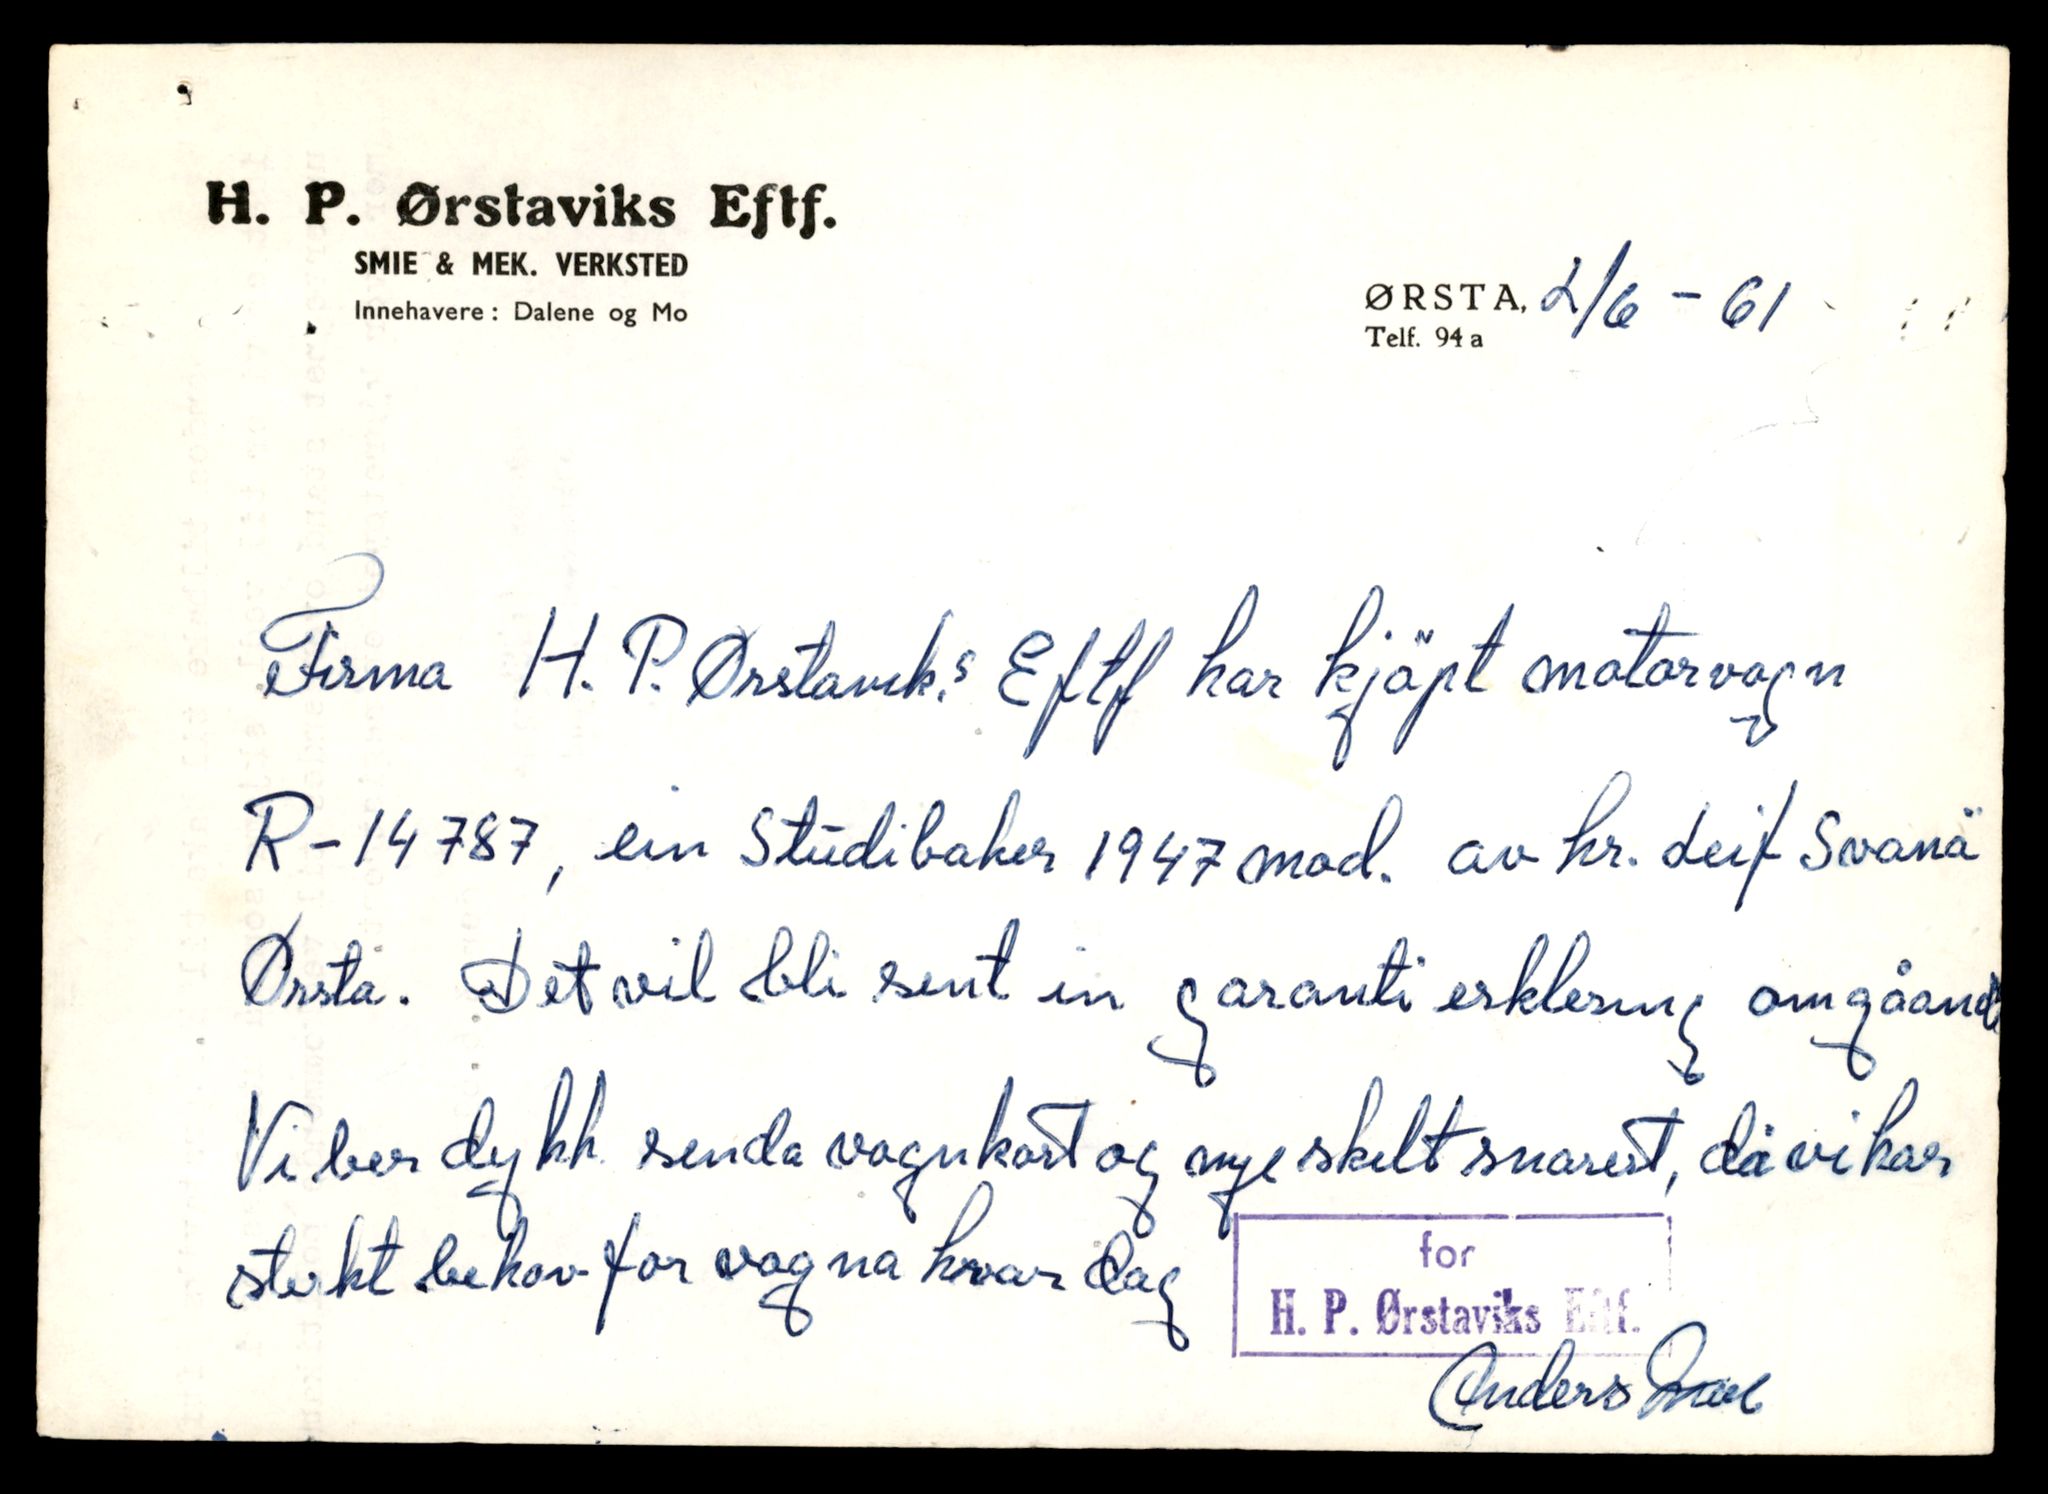 H. P. Ørstaviks Eftf.
SMIE & MEK. VERKSTED
Innehavere: Dalene og Mo
ØRSTA, 2/6 - 61
Telf. 94 a
Firma H. P. Ørstavik,s Eftf har kjöpt motorvogn
R-14787, ein Studibaker 1947 mod. av hr. Leif Svanä
Ørsta. Det vil bli sent in garanti erklering omgåande
Vi ber dykk senda vognkort og nye skilt snarest, då vi har
sterkt behov for vogna hvar dag
for
H. P. Ørstaviks Eftf.
Anders